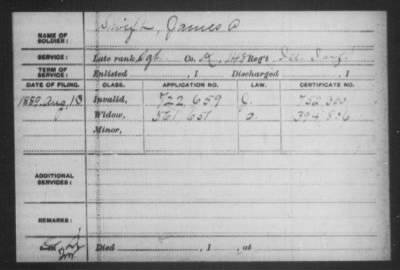 NAME OF SOLDIER: Swift, James
SERVICE: Late rank, Sgt Co. 148 Reg't Ill Inf
TERM OF SERVICE: Enlisted , 1 Discharged , 1
DATE OF FILING. CLASS. APPLICATION NO. LAW. CERTIFICATE NO.
1889 Aug, 13 Invalid, 722.659 J. 752.300
Widow, 561.651 394.506
Minor,
ADDITIONAL SERVICES:
REMARKS:
Died , 1 , at